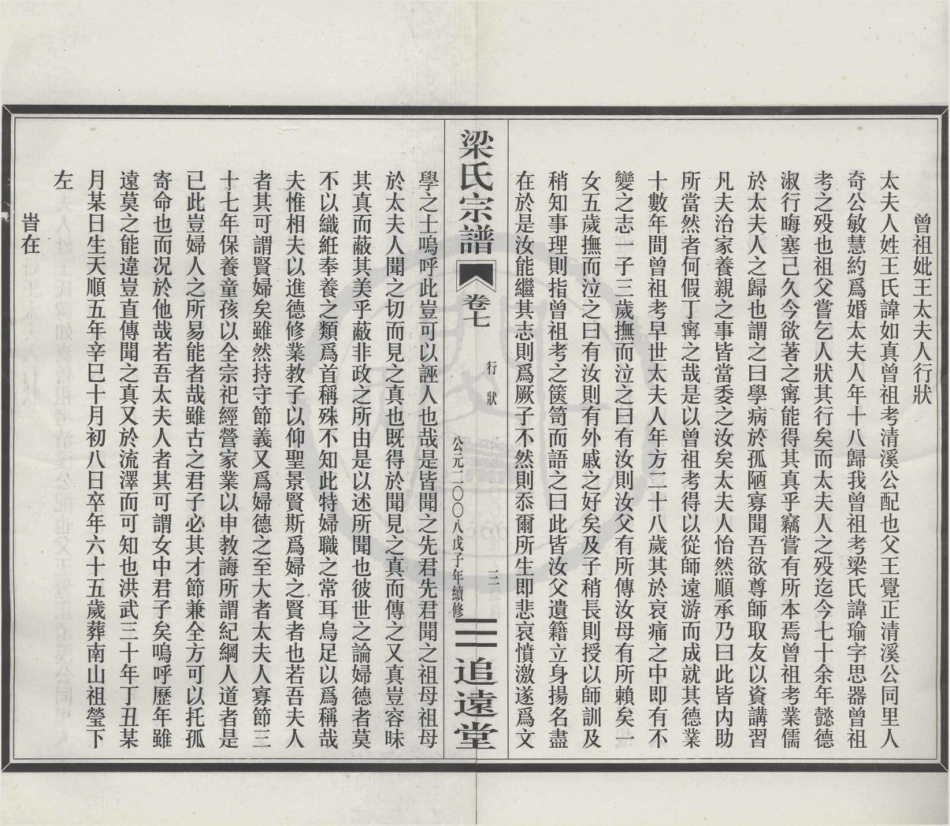 曾祖妣王太夫人行狀
太夫人姓王氏諱如真曾祖考清溪公配也父王覺正清溪公同里人
奇公敏慧約爲婚太夫人年十八歸我曾祖考梁氏諱瑜字思器曾祖
考之殁也祖父嘗乞人狀其行矣而太夫人之殁迄今七十余年懿德
淑行晦塞己久今欲著之寗能得其真乎竊嘗有所本焉曾祖考業儒
於太夫人之歸也謂之曰學病於孤陋寡聞吾欲尊師取友以資講習
凡夫治家養親之事皆當委之汝矣太夫人怡然順承乃曰此皆内助
所當然者何假丁寗之哉是以曾祖考得以從師遠游而成就其德業
十數年間曾祖考早世太夫人年方二十八歲其於哀痛之中即有不
變之志一子三歲撫而泣之曰有汝則汝父有所傳汝母有所賴矣一
女五歲撫而泣之曰有汝則有外戚之好矣及子稍長則授以師訓及
稍知事理則指曾祖考之篋笥而語之曰此皆汝父遺籍立身揚名盡
在於是汝能繼其志則爲厥子不然則忝爾所生即悲哀憤激遂爲文
梁氏宗譜 卷七 行狀 公元二〇〇八戊子年續修 三 三 追遠堂
學之士嗚呼此豈可以誣人也哉是皆聞之先君先君聞之祖母祖母
於太夫人聞之切而見之真也既得於聞見之真而傳之又真豈容昧
其真而蔽其美乎蔽非政之所由是以述所聞也彼世之論婦德者莫
不以織紝奉養之類爲首稱殊不知此特婦職之常耳烏足以爲稱哉
夫惟相夫以進德修業教子以仰聖景賢斯爲婦之賢者也若吾夫人
者其可謂賢婦矣雖然持守節義又爲婦德之至大者太夫人寡節三
十七年保養童孩以全宗祀經營家業以申教誨所謂紀綱人道者是
已此豈婦人之所易能者哉雖古之君子必其才節兼全方可以托孤
寄命也而况於他哉若吾太夫人者其可謂女中君子矣嗚呼歷年雖
遠莫之能違豈直傳聞之真又於流澤而可知也洪武三十年丁丑某
月某日生天順五年辛巳十月初八日卒年六十五歲葬南山祖瑩下
左
旹在